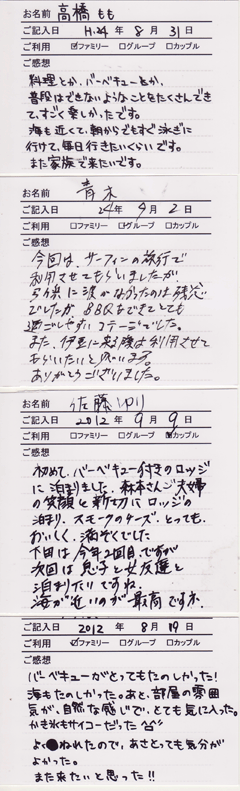 お名前 高橋 もも
ご記入日 H.24 年 8 月 31 日
ご利用 ☑ファミリー □グループ □カップル
ご感想
料理とか、バーベキューとか、
普段はできないようなことをたくさんでき
て、すごく楽しかったです。
海も近くて、朝からでもすぐ泳ぎに
行けて、毎日行きたいくらいです。
また家族で来たいです。
お名前 青木
ご記入日 24年 9 月 2 日
ご利用 □ファミリー ☑グループ □カップル
ご感想
今回は、サーフィンの旅行で
利用させてもらいましたが、
に波がなかったのは残念
でしたが BBQもできてとても
過ごしやすいコテージでした。
また、伊豆に来た際は利用させて
もらいたいと思います。
ありがとうございました。
お名前 佐藤ゆり
ご記入日 2012 年 9 月 9 日
ご利用 □ファミリー □グループ ☑カップル
ご感想
初めて、バーベキュー付きのロッジ
に泊まりました。森本さんご夫婦
の笑顔と親切に ロッジの
泊まり、スモークのチーズ、とっても
おいしく、満ぞくでした
下田は 今年2回目ですが
次回は 息子と女友達と
泊まりたいですね
海が近いのが 最高ですネ.
ご記入日 2012 年 8 月 19 日
ご利用 ☑ファミリー □グループ □カップル
ご感想
バーベキューがとってもたのしかった!
海もたのしかった。あと、部屋の雰囲
気が、自然な感じで、とても気に入った。
かき氷もサイコーだった^^
よくねれたので、あさとっても気分が
よかった。
また来たいと思った!!